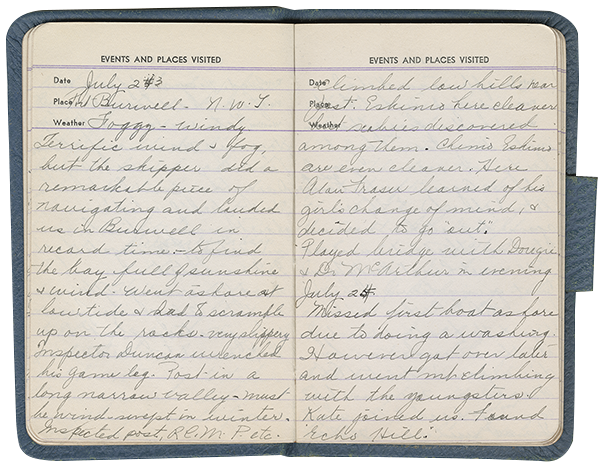 EVENTS AND PLACES VISITED
Date July 23
Place Pt Burwell - N.W.T.
Weather Foggy - windy
Terrific wind & fog,
but the skipper did a
remarkable piece of
navigating and landed
us in Burwell in
record time - to find
the bay full of sunshine
& wind. Went ashore at
low tide & had to scramble
up on the rocks - very slippery
Inspector Duncan wrenched
his game leg. Post in a
long narrow valley - must
be wind-swept in winter.
Inspected post, R.C.M.P. etc.
EVENTS AND PLACES VISITED
Date Climbed low hills near
Place post. Eskimo here cleaner
Weather but scabies discovered
among them. Chimo Eskimo
are even cleaner. Here
Alan Fraser learned of his
girl's change of mind, &
decided to "go out".
Played bridge with Dougie
& Dr McArthur in evening
July 24
Missed first boat ashore
due to doing a washing.
However got over later
and went mt climbing
with the youngsters.
Kate joined us. Found
"Echo Hill."